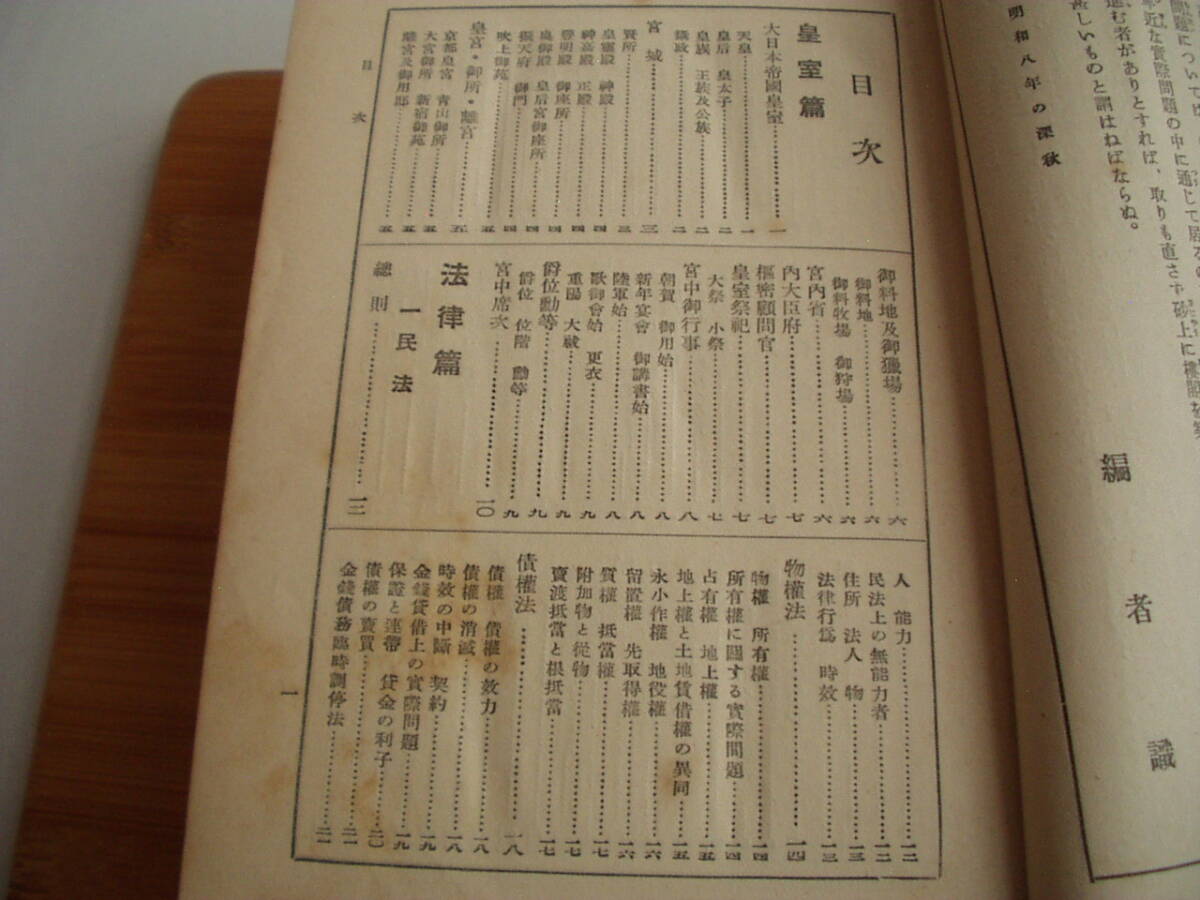 題について
卑近な實際問題の中に通じて居る
進む者がありとすれば、取りも直さず砂上に樓閣を築
甚しいものと謂はねばならぬ。
昭和八年の深秋
編者識
目次
皇室篇
大日本帝國皇室……一
天皇……一
皇后 皇太子……二
皇族 王族及公族……二
攝政……二
宮城……三
賢所……三
皇靈殿 神殿……四
神嘉殿 正殿……四
豐明殿 御座所……四
奧御殿 皇后宮御座所……四
振天府 御門……四
吹上御苑……五
皇宮・御所・離宮……五
京都皇宮 青山御所……五
大宮御所 新宿御苑……五
離宮及御用邸……五
御料地及御獵場……六
御料地……六
御料牧場 御狩場……六
宮內省……六
內大臣府……七
樞密顧問官……七
皇室祭祀……七
大祭 小祭……七
宮中御行事……八
朝賀 御用始……八
新年宴會 御講書始……八
陸軍始……八
歌御會始 更衣……九
重陽 大祓……九
爵位勳等……九
爵位 位階 勳等……九
宮中席次……一〇
法律篇
一民法
總則……一二
人 能力……一二
民法上の無能力者……一二
住所 法人 物……一三
法律行爲 時效……一三
物權法……一四
物權 所有權……一四
所有權に關する實際問題……一四
占有權 地上權……一五
地上權と土地賃借權の異同……一五
永小作權 地役權……一六
留置權 先取得權……一六
質權 抵當權……一七
附加物と從物……一七
賣渡抵當と根抵當……一七
債權法……一八
債權 債權の效力……一八
債權の消滅……一八
時效の中斷 契約……一九
金錢貸借上の實際問題……一九
保證と連帶 貸金の利子……二〇
債權の賣買……二一
金錢債務臨時調停法……二一
目次
一